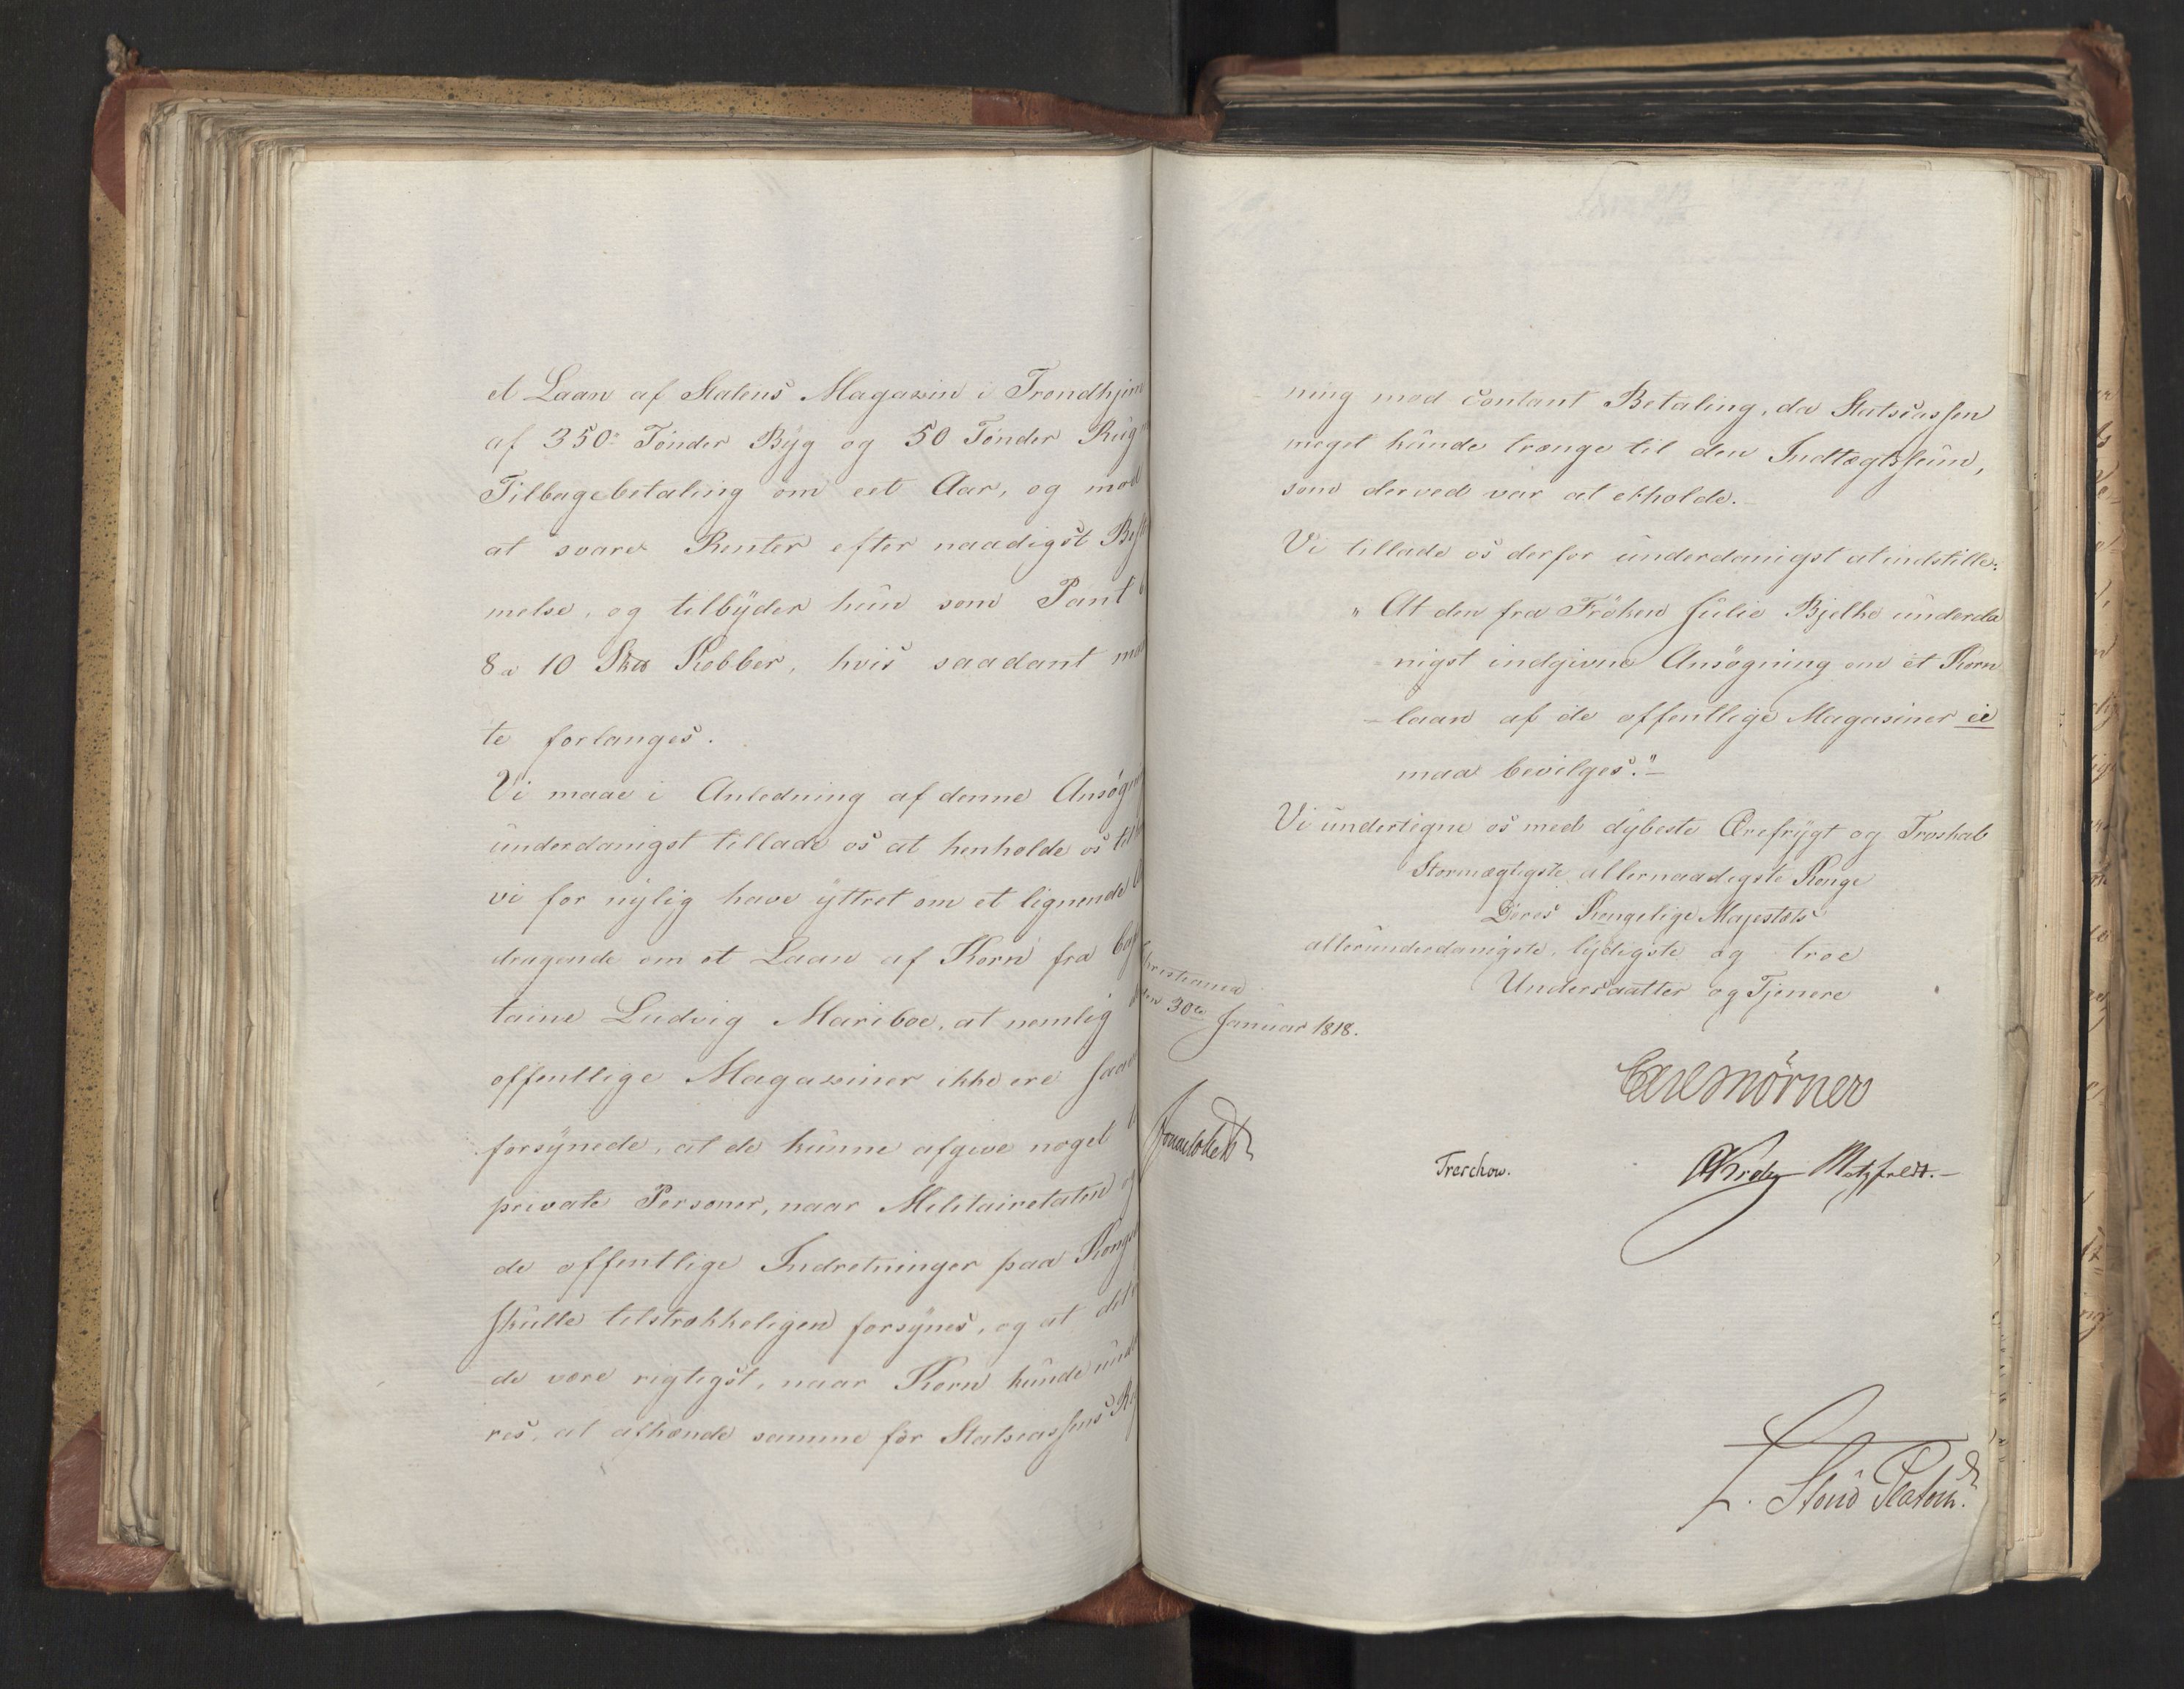 et Laan af Statens Magazin i Trondhjem
af 350 Tønder Byg og 50 Tønder Rug
Tilbagebetaling om eet Aar, og mod
at svare Renter efter naadigst
melse, og tilbyder hun som Pant
8 a 10 Kobber, hvis saadant
te forlanges.
Vi maae i Anledning af denne
underdanigst tillade os at henholde os
vi for nylig have yttret om et lignende
dragende om et Laan af Korn fra
taine Ludvig Mariboe, at nemlig
offentlige Magaziner ikke ere
forsynede, at de kunne afgive noget
private Personer, naar Militairetaten
de offentlige Indretninger paa
skulle tilstrækkeligen forsynes, og at
de være rigtigst, naar Korn kunde
res, at afhænde samme for Statscassens
ning mod contant Betaling, da Statscassen
meget kunde trænge til den Indtægtssum,
som derved var at erholde.
Vi tillade os derfor underdanigst at indstille:
"At den fra Frøken Julie Bjelke underda
nigst indgivne Ansøgning om et Korn
laan af de offentlige Magasiner ei
maa bevilges."
Vi undertegne os med dybeste Ærefrygt og Troskab
Stormægtigste allernaadigste Konge
Deres Kongelige Majestæts
allerunderdanigste, lydigste og troe
Undersaatter og Tjenere
Christiania
den 30te Januar 1818.
Carl Mörner
Treschow.
Krebs Motzfeldt.
L. Stoud Platou